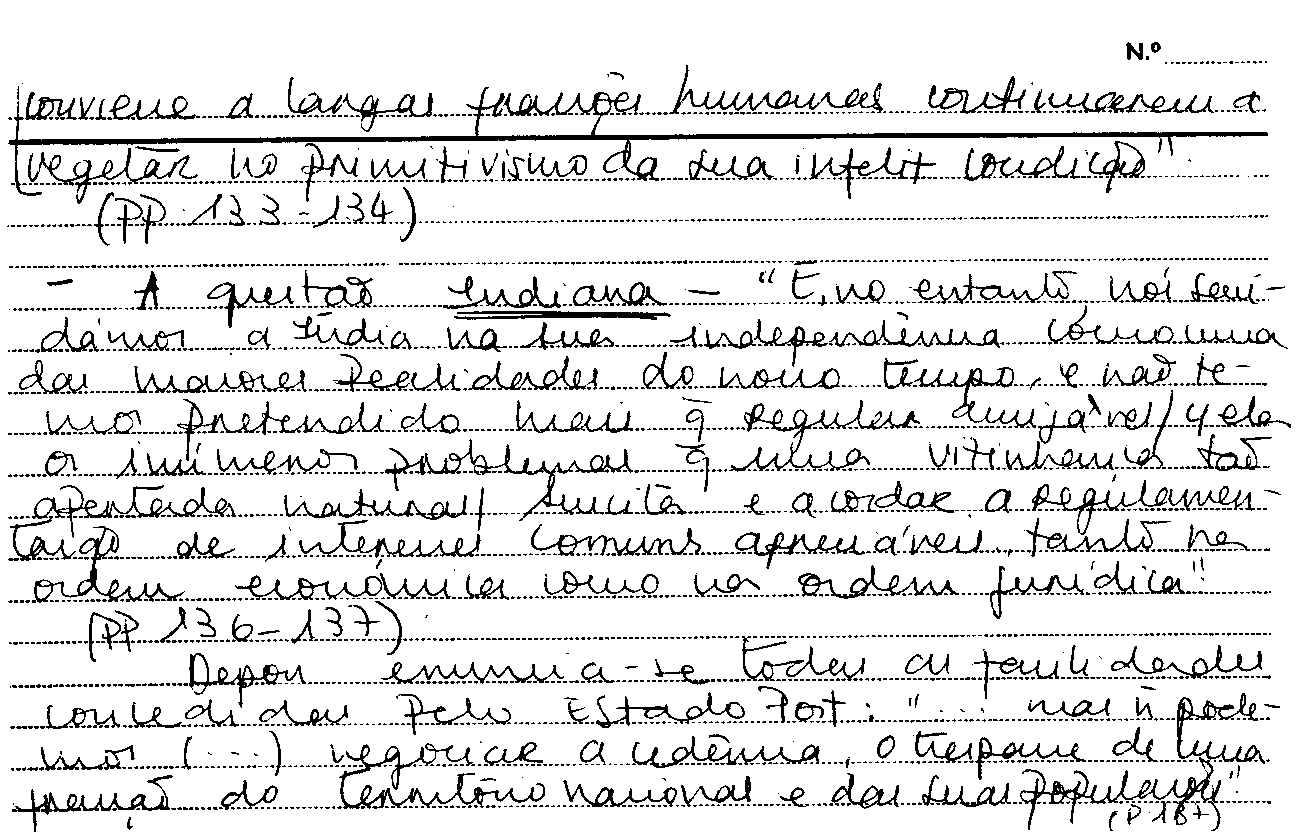 N.º
conviene a largas franções humanas continuarem a
vegetàr no primitivismo da sua infeliz condição".
(PP. 133-134)
- A questão Indiana - "E, no entanto, nós saü-
dámos a Índia na sua independência como uma
das maiores Realidades do novo tempo, e não te-
mos pretendido mais q̄ regular amigàvel/ y ela
os inúmeros problemas q̄ uma vizinhança tão
apertada natural/ suscita e acordar a Regulamen-
tação de interesses comuns apreciáveis, tanto na
ordem económica como na ordem jurídica"
(PP 136-137)
Depois enuncia-se todas as facilidades
concedidas Pelo Estado Port: "... mas ñ pode-
mos (...) negociar a cedência, o trespasse de uma
fração do território nacional e das suas populações"